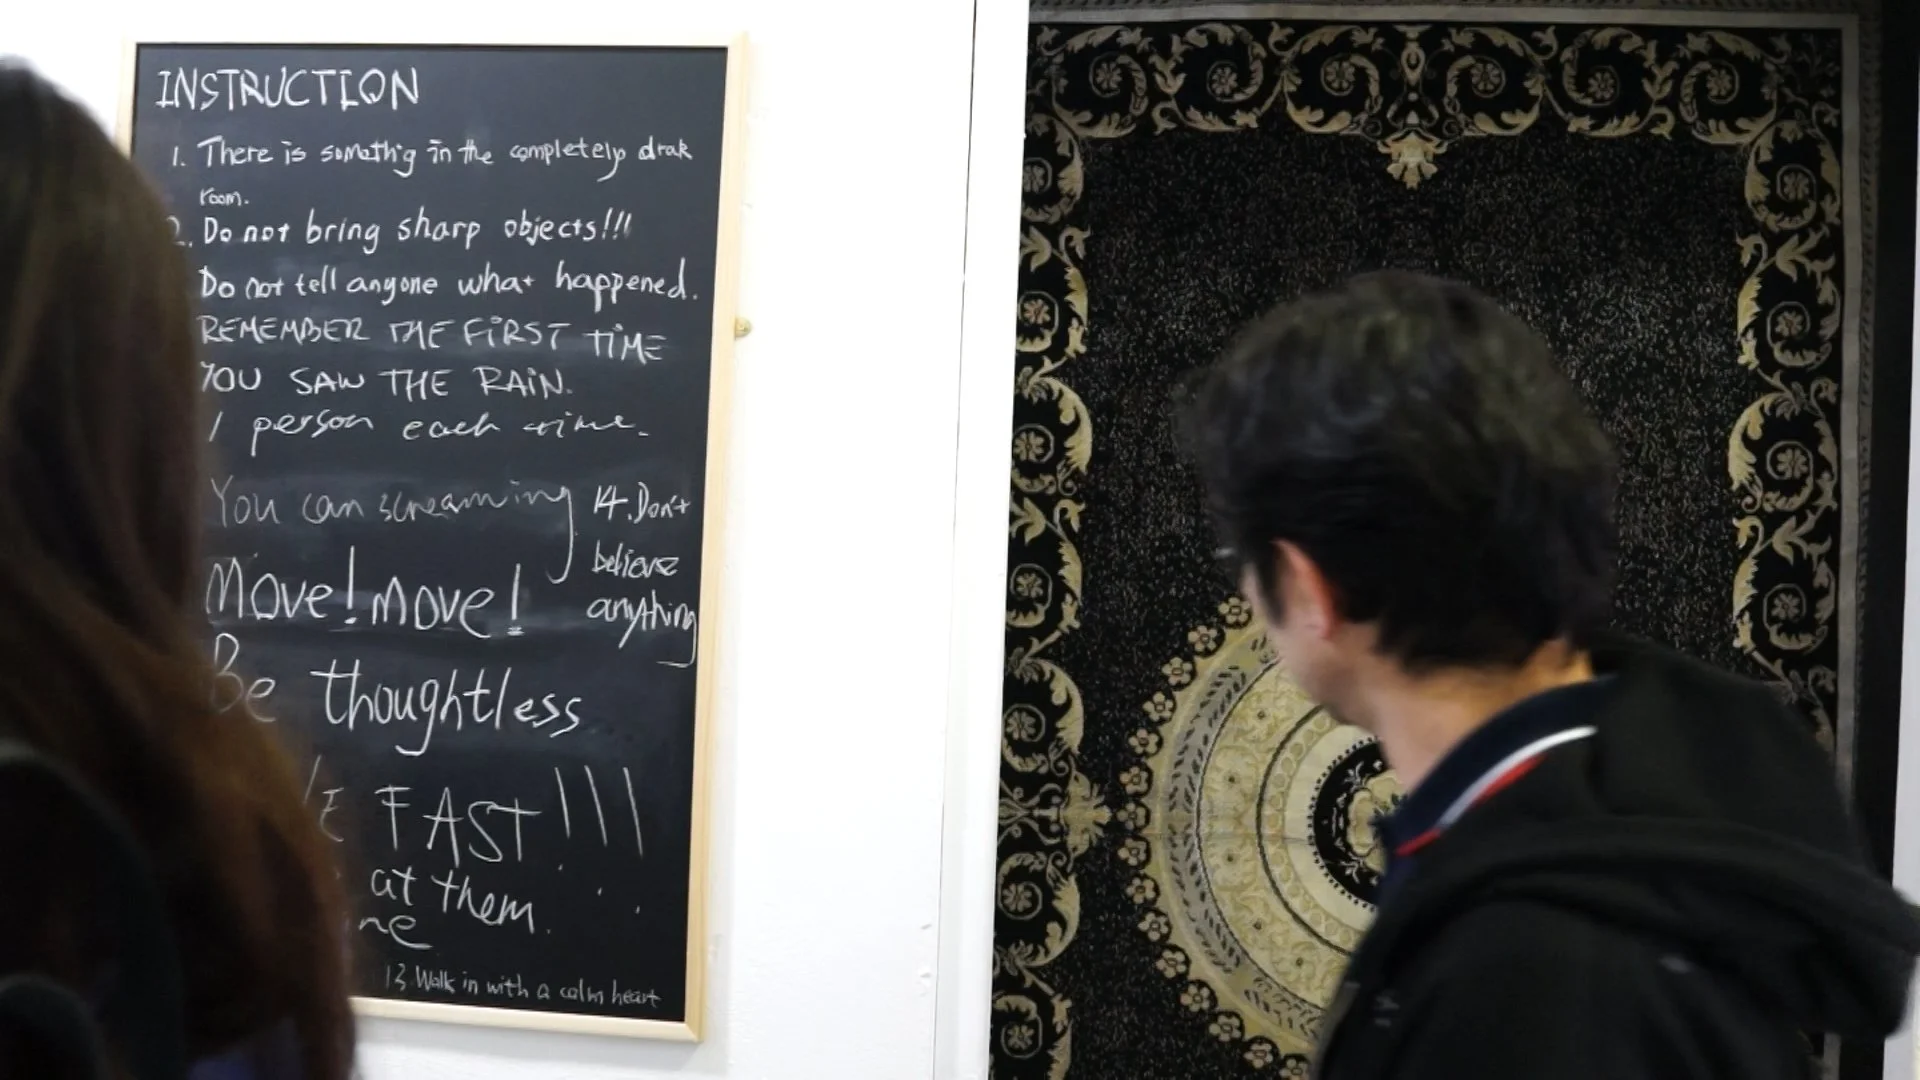 INSTRUCTION
1. There is somethig in the completely drak
room.
2. Do not bring sharp objects!!!
Do not tell anyone what happened.
REMEMBER THE FIRST TIME
YOU SAW THE RAIN.
1 person each time.
You can screaming
14. Don't
believe
anything
Move! move!
Be thoughtless
FAST!!!
at them.
13. Walk in with a calm heart